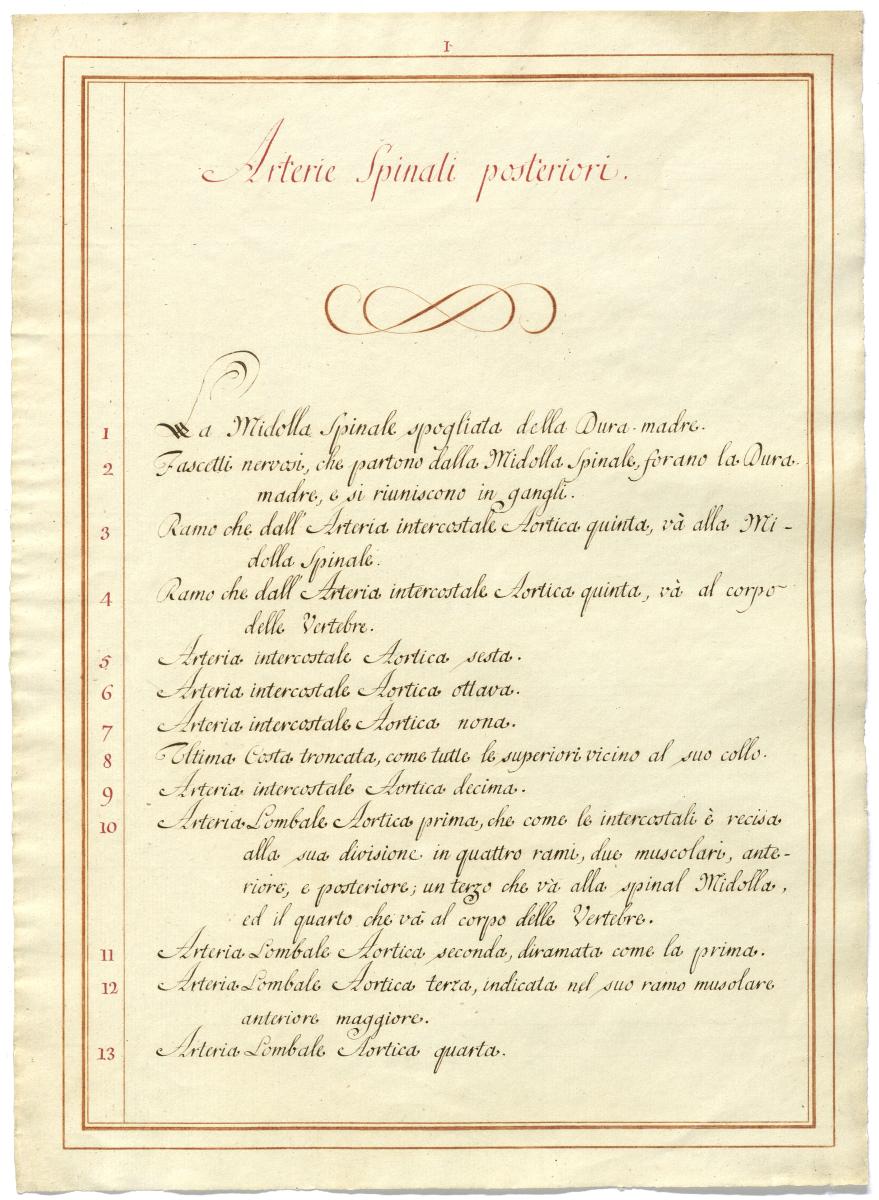 I
Arterie Spinali posteriori.
1 La Midolla Spinale spogliata della Dura-madre.
2 Fascetti nervosi, che partono dalla Midolla Spinale, forano la Dura
madre, e si riuniscono in gangli.
3 Ramo che dall' Arteria intercostale Aortica quinta, và alla Mi-
dolla Spinale.
4 Ramo che dall' Arteria intercostale Aortica quinta, và al corpo
delle Vertebre.
5 Arteria intercostale Aortica sesta.
6 Arteria intercostale Aortica ottava.
7 Arteria intercostale Aortica nona.
8 Ultima Costa troncata, come tutte le superiori vicino al suo collo.
9 Arteria intercostale Aortica decima.
10 Arteria Lombale Aortica prima, che come le intercostali è recisa
alla sua divisione in quattro rami, due muscolari, ante-
riore, e posteriore; un terzo che và alla spinal Midolla,
ed il quarto che và al corpo delle Vertebre.
11 Arteria Lombale Aortica seconda, diramata come la prima.
12 Arteria Lombale Aortica terza, indicata nel suo ramo musolare
anteriore maggiore.
13 Arteria Lombale Aortica quarta.